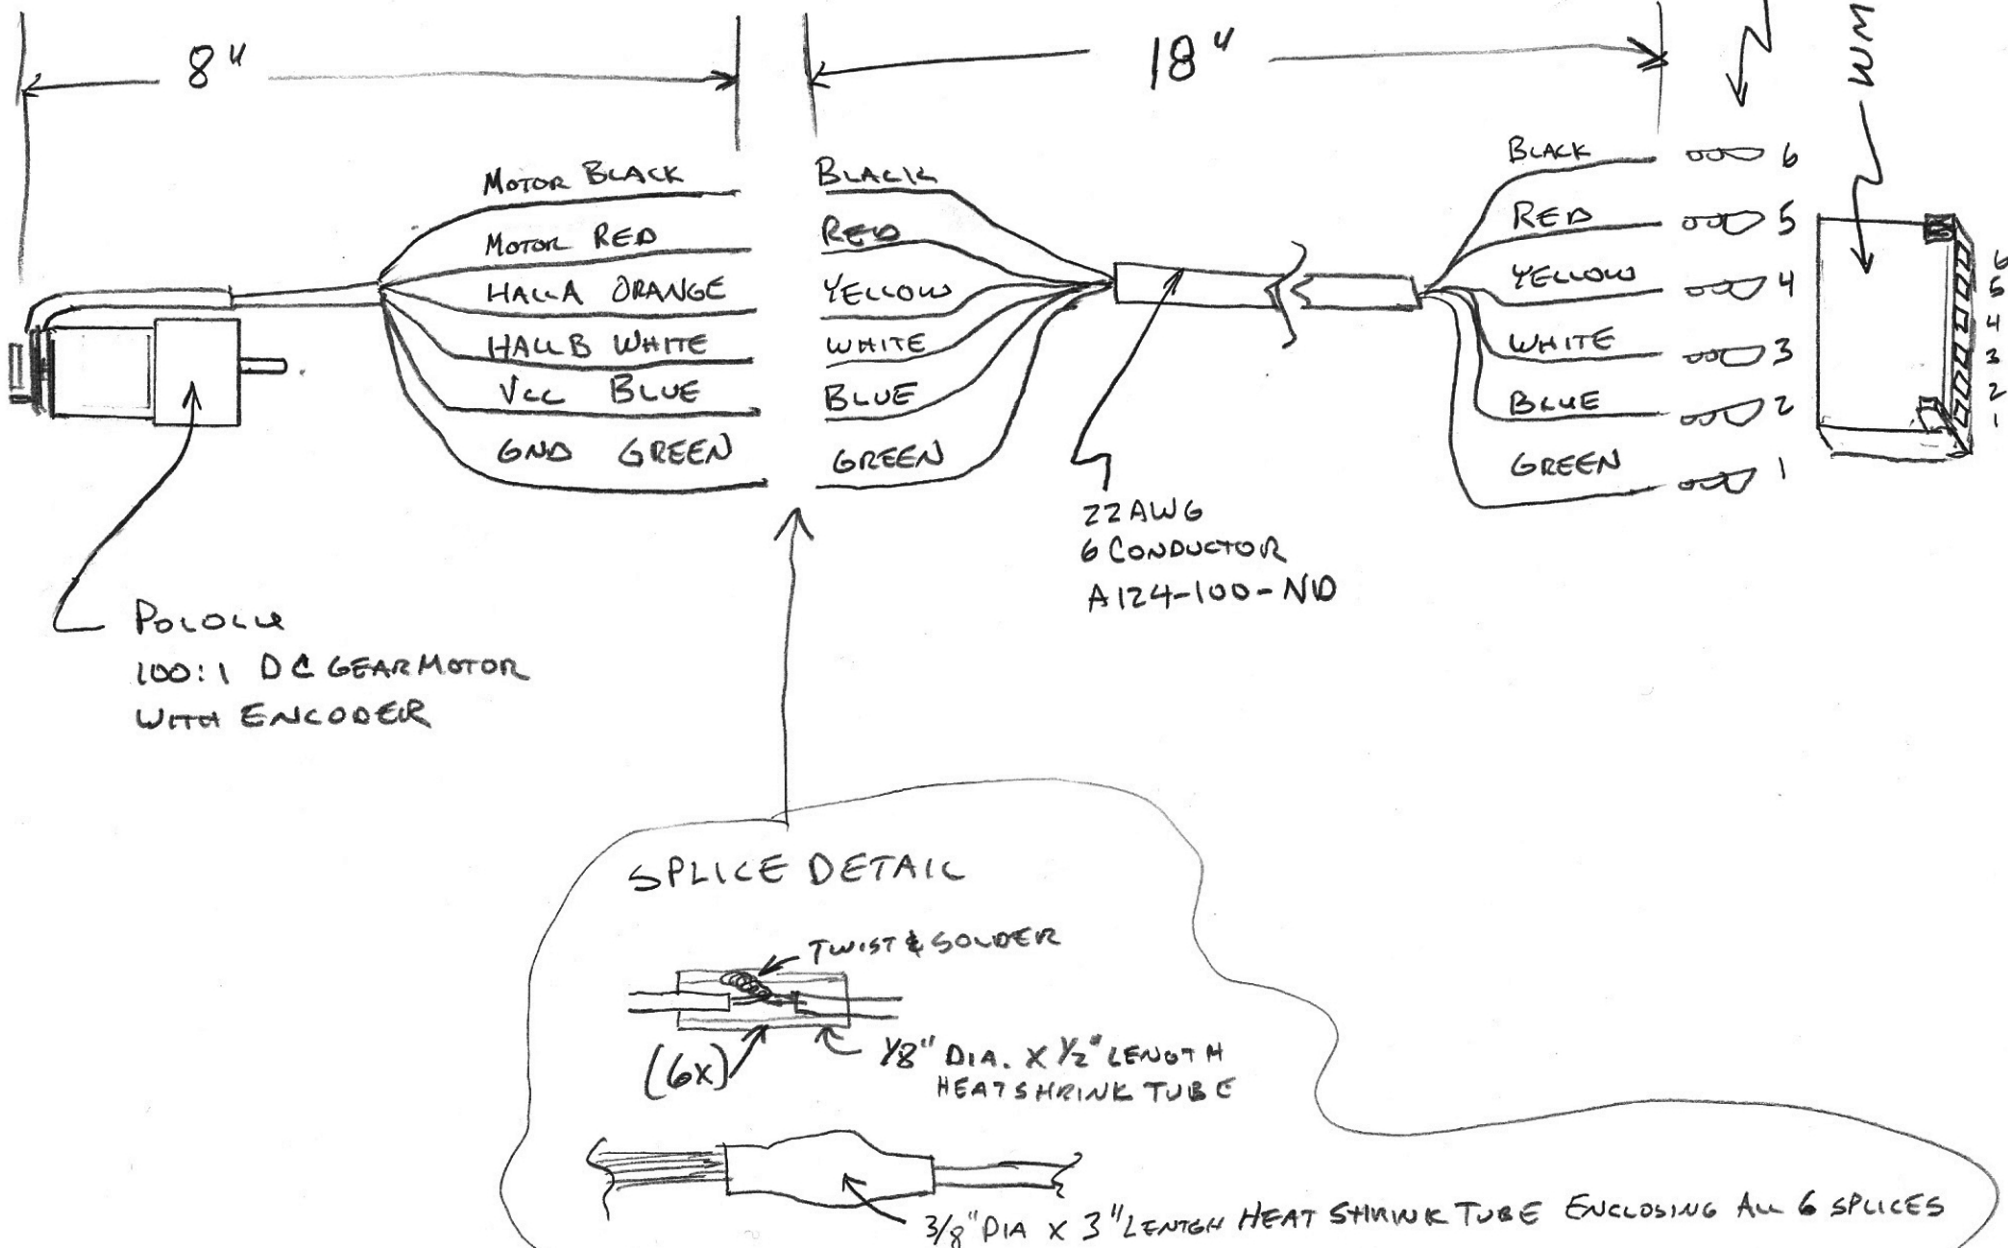 8"
18"
MOTOR BLACK
MOTOR RED
HALL A ORANGE
HALL B WHITE
VCC BLUE
GND GREEN
BLACK
RED
YELLOW
WHITE
BLUE
GREEN
BLACK 6
RED 5
YELLOW 4
WHITE 3
BLUE 2
GREEN 1
6
5
4
3
2
1
22 AWG
6 CONDUCTOR
A124-100-ND
POLOLU
100:1 DC GEARMOTOR
WITH ENCODER
SPLICE DETAIL
TWIST & SOLDER
(6X)
1/8" DIA. X 1/2" LENGTH
HEATSHRINK TUBE
3/8" DIA X 3" LENTGH HEAT SHRINK TUBE ENCLOSING ALL 6 SPLICES